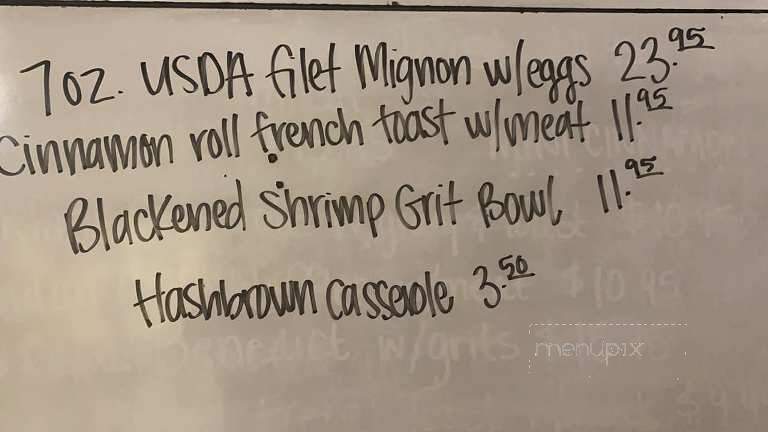 7 oz. USDA filet Mignon w/eggs 23.95
Cinnamon roll french toast w/meat 11.95
Blackened Shrimp Grit Bowl 11.95
Hashbrown Casserole 3.50
$10.95
Benedict w/grits
menupix